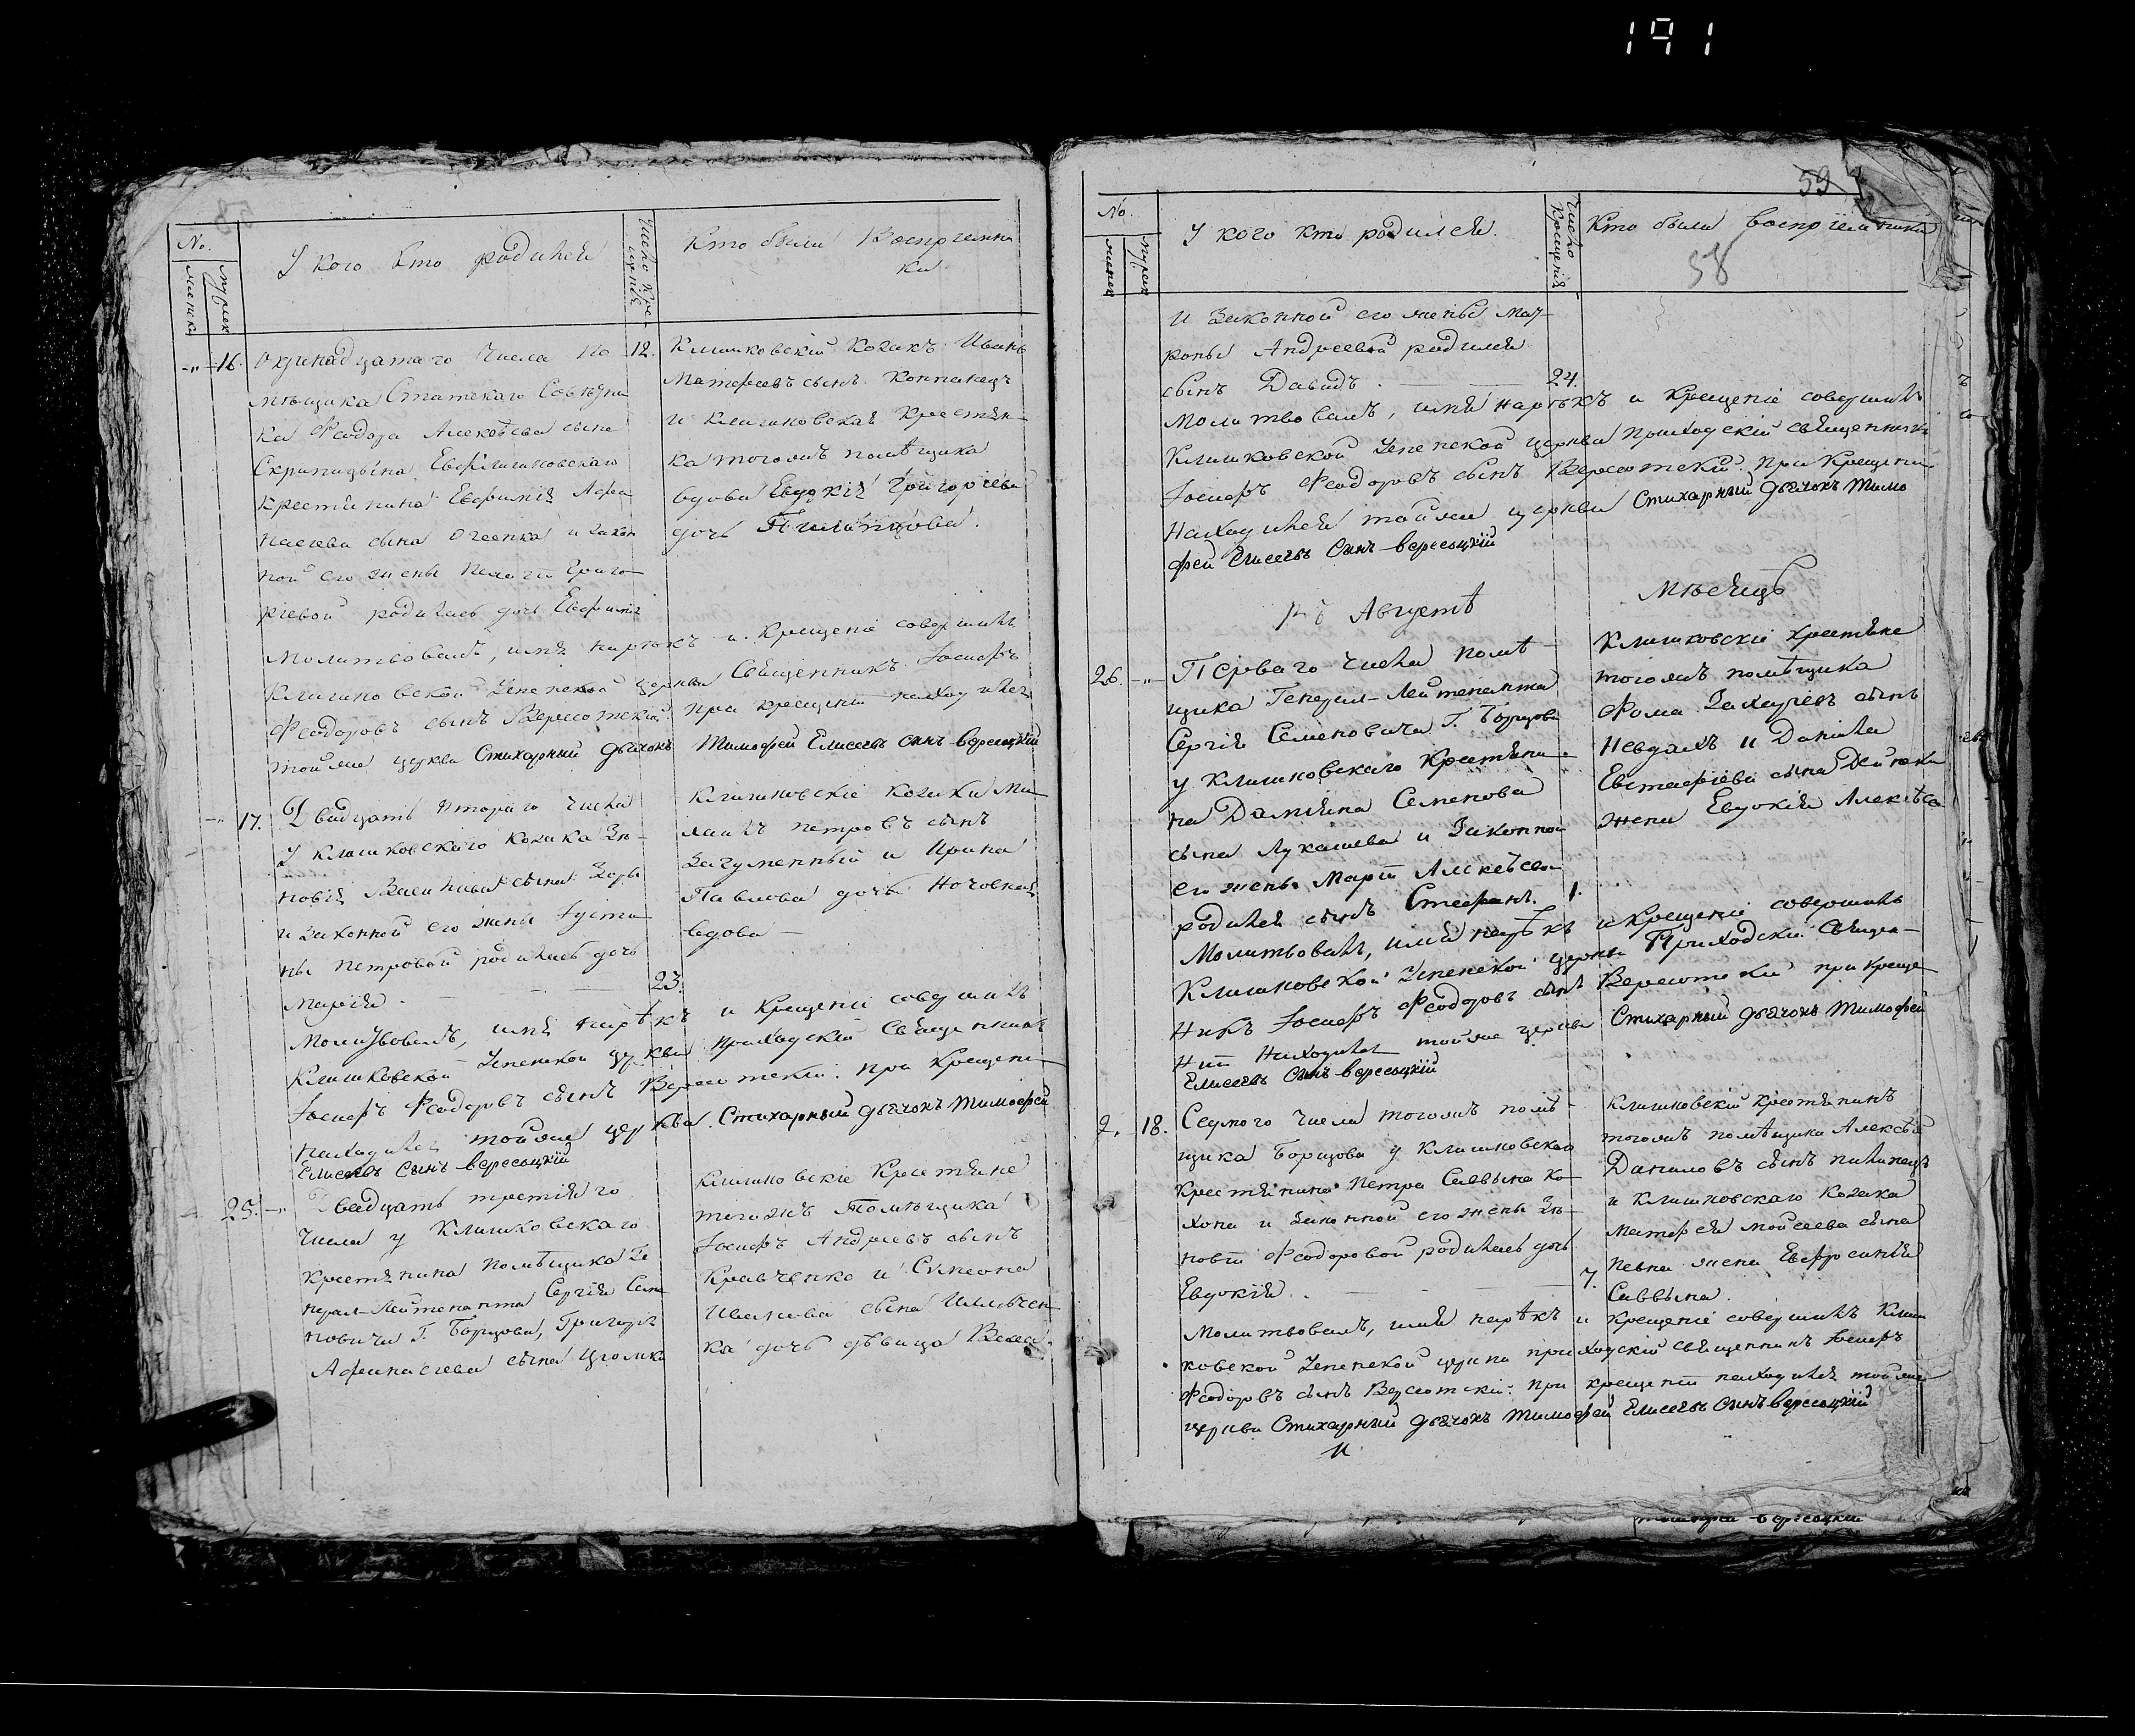 191
58
No.
мужеск
женск
У кого кто родился
Число крещенія
Кто были Воспріемники
16.
Одинадцатаго числа по
мѣщика Статскаго Совѣтни
ка Феодора Алексѣева сына
Скрипицына
крестянина Евфимія Афа
насіева сына и закон
ной его жены Григо
ріевой родилась дочь Евфимія
12.
Клишковскій козакъ Иванъ
Матфеевъ сынъ
и Клишковская крестян
ка тогожъ помѣщика
вдова Евдокія Григоріева
дочь
Молитвовалъ, имя нарѣкъ и крещеніе совершилъ
Клишковской Успенской церкви Священникъ Іосифъ
Феодоровъ сынъ Вересотскій: при крещеніи находился
тойже церкви Стихарный дьячокъ Тимофей Елисеевъ сынъ вересоцкій
17.
Двадцать втораго числа
У клишковскаго козака Зѣ-
новія Василіева сына
и законной его жены Іусти
ны Петровой родилась дочь
Марія
23.
Клишковскіе козаки Ми
хаилъ Петровъ сынъ
Загуменный и Ирина
Павлова дочь
вдова
Молитвовалъ, имя нарѣкъ и крещеніе совершилъ
Клишковской Успенской церкви приходскій Священникъ
Іосифъ Феодоровъ сынъ Вересотскій: при крещеніи
находился тойже церкви Стихарный дьячокъ Тимофей
Елисеевъ сынъ вересоцкій
25.
Двадцать третіяго
числа у Клишковскаго
крестянина помѣщика Ге
нерал-Лейтенанта Сергія Семе
новича Г. Борщова, Григорія
Афанасіева сына
Клишковскіе крестяне
тогожъ помѣщика
Іосифъ Андреевъ сынъ
Кравченко и Симеона
Иванова сына
ка дочь дѣвица
59
No.
женск
мужеск
У кого кто родился.
Число Крещенія
Кто были воспріемники
58
и законной его жены Мат
роны Андреевой родился
сынъ Давидъ.
24.
Молитвовалъ, имя нарѣкъ и крещеніе совершилъ
Клишковской Успенской церкви приходскій священникъ
Іосифъ Феодоровъ сынъ Вересотскій: при крещеніи
находился тойже церкви Стихарный дьячокъ Тимо
фей Елисеевъ Сынъ вересоцкій
Въ Августѣ
Мѣсяцѣ
26.
Перваго числа помѣ-
щика Генерал-Лейтенанта
Сергія Семеновича Г. Борщова
у Клишковскаго Крестяни-
на Даміяна Семенова
сына Лукашева и законной
его жены Марѳы Алексѣевой
родился сынъ Стефанъ.
1.
Клишковскіе крестяне
тогожъ помѣщика
Фома Захаріевъ сынъ
и Даніила
Евстафіева сына Дейнеки
жена Евдокія Алексѣева
Молитвовалъ, имя нарѣкъ и крещеніе совершилъ
Клишковской Успенской церкви Приходскій Священ-
никъ Іосифъ Феодоровъ сынъ Вересотскій при креще
ніи находился тойже церкви Стихарный дьячокъ Тимофей
Елисеевъ Сынъ вересоцкій
2.
18.
Седмого числа тогожъ помѣ-
щика Борщова у Клишковскаго
крестянина Петра Саввына
и законной его жены Зѣ-
новіи Феодоровой родилась дочь
Евдокія.
7.
Клишковскій крестянинъ
тогожъ помѣщика Алексѣй
Даниловъ сынъ
и Клишковскаго козака
Матфея Мойсеева сына
жена Евфросинія
Саввына.
Молитвовалъ, имя нарѣкъ и крещеніе совершилъ Клиш
ковской Успенской церкви приходскій священникъ Іосифъ
Феодоровъ сынъ Вересотскій: при крещеніи находился тойже
церкви Стихарный дьячокъ Тимофей Елисеевъ Сынъ вересоцкій
вересоцкій